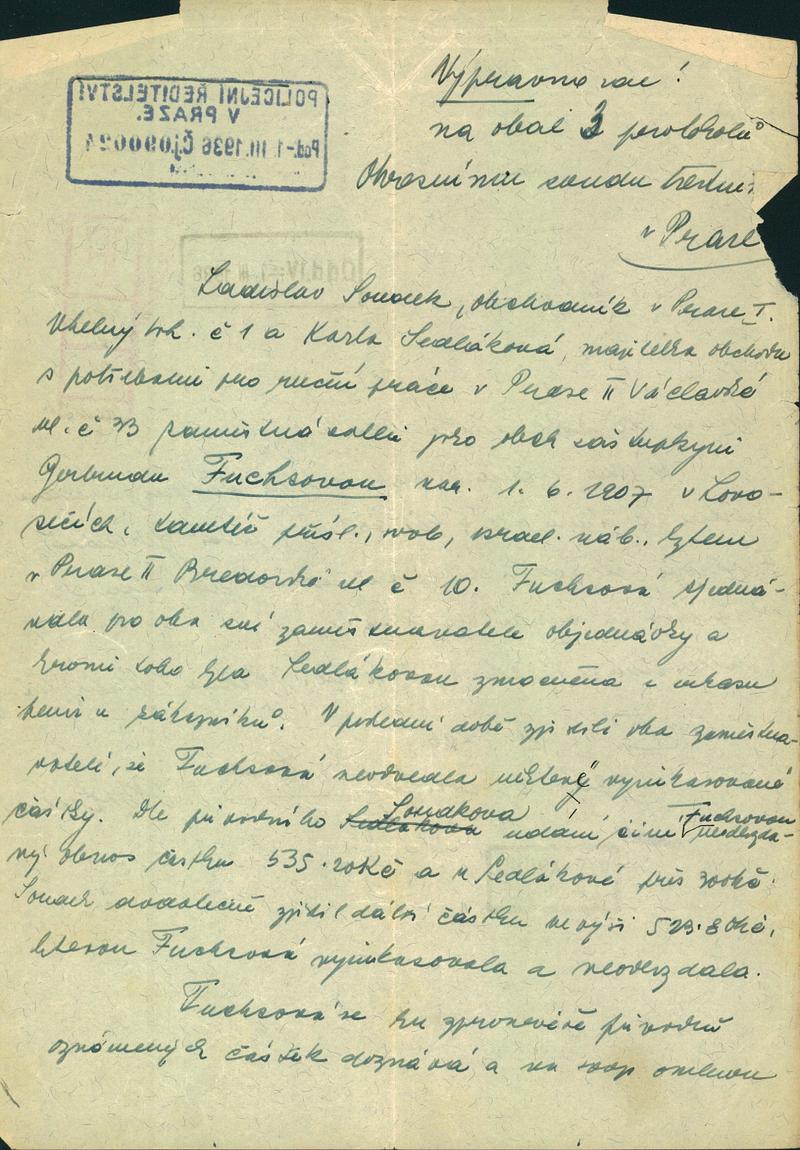 POLICEJNÍ ŘEDITELSTVÍ
V PRAZE.
1. III. 1936 Čj 090021
Výpravno
na obal 3 protokolů
Okresnímu soudu trestní
v Praze
Ladislav Soucek, obchodník v Praze I.
Uhelný trh. č 1 a Karla Sedláková, majitelka obchodu
s potřebami pro ruční práce v Praze II Václavská
ul. č 33 zaměstnávali pro obch zástupkyni
Gertrudu Fuchsovou nar. 1. 6. 1907 v Lovo-
sicích, tamtéž přísl., svob, israel. náb., bytem
v Praze II Bredovská ul č 10. Fuchsová sjedná-
vala pro oba své zaměstnavatele objednávky a
kromě toho byla Sedlákovou zmocněna k inkaso
u zákazníků. V poslední době zjistili oba zaměstna-
vatelé, že Fuchsová neodvedla některé vyinkasované
částky. Dle původního Sedlákova Souckova udání činí Fuchsovou neodevzda-
ný obnos částku 535.20Kč a u Sedlákové přes 300Kč.
Soucek dodatečně zjistil další částku ve výši 523.80Kč,
kterou Fuchsová vyinkasovala a neodevzdala.
Fuchsová se ku zpronevěře původně
oznámených částek doznává a na svoji omluvu